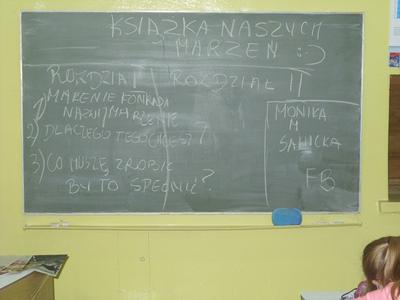 KSIĄŻKA NASZYCH
MARZEŃ :-)
ROZDZIAŁ I
1) MARZENIE KONRADA
NASZE MARZENIE
2) DLACZEGO TEGO CHCESZ?
3) CO MUSZĘ ZROBIĆ
BY TO SPEŁNIĆ?
ROZDZIAŁ II
MONIKA
M
SAWICKA
FB